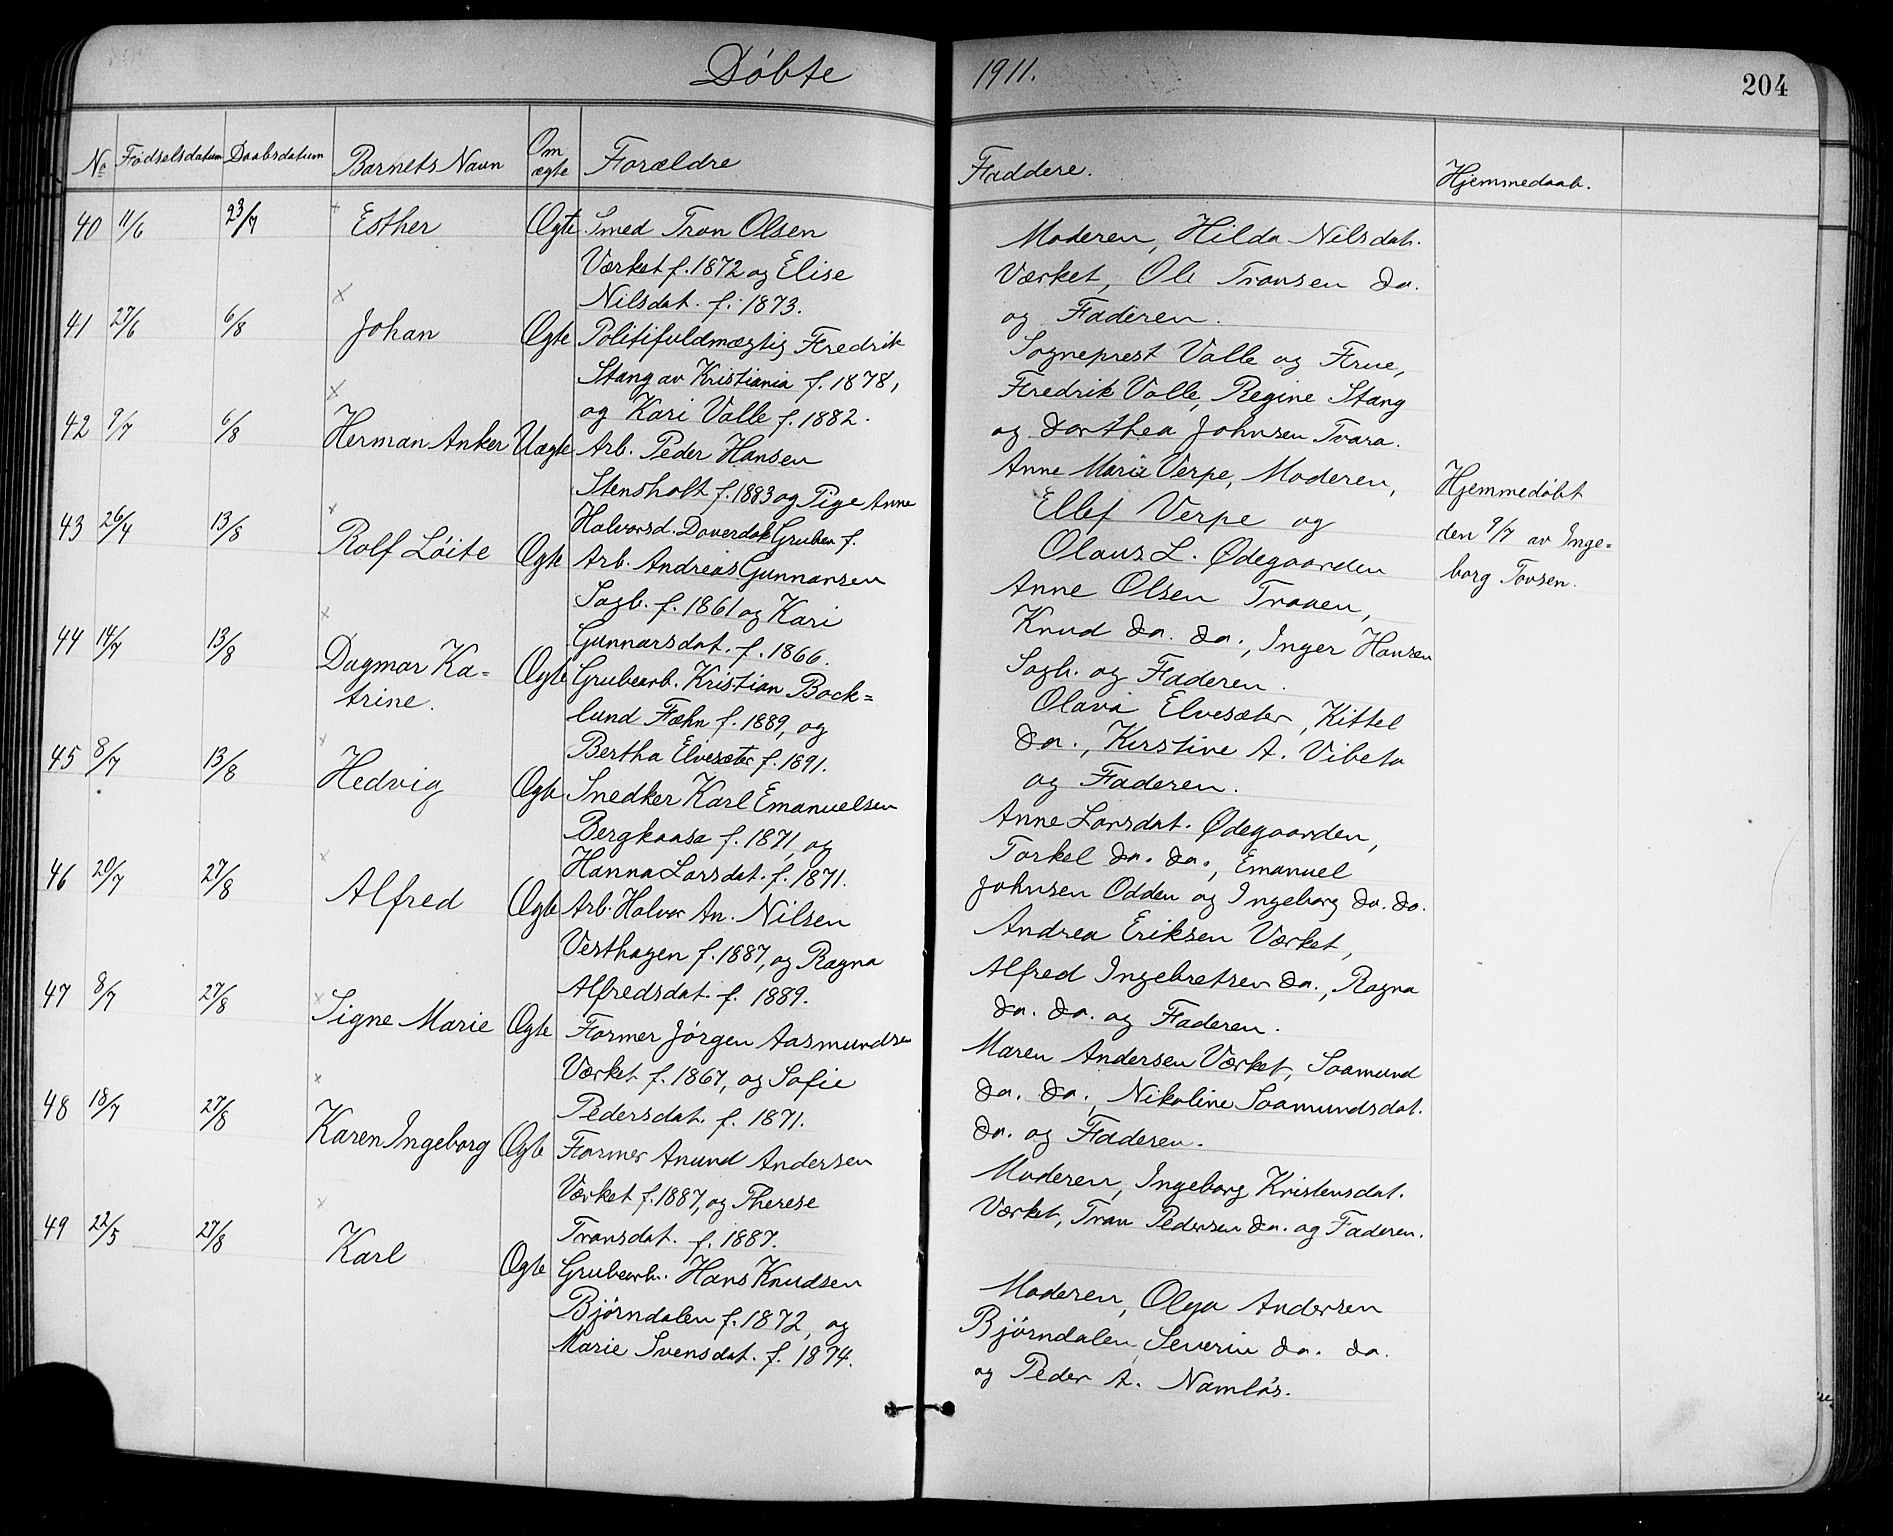 Döbte 1911. 204
No Födselsdatum Daabsdatum Barnets Navn Om ægte Forældre Faddere. Hjemmedaab.
40 11/6 23/7 Esther Ægte Smed Tron Olsen
Værket f. 1872 og Elise
Nilsdat. f. 1873.
Moderen, Hilda Nilsdat.
Værket, Ole Tronsen do.
og Faderen.
41 27/6 6/8 Johan Ægte Politifuldmægtig Fredrik
Stang av Kristiania f. 1878,
og Kari Valle f. 1882.
Sogneprest Valle og Frue,
Fredrik Valle, Regine Stang
og Dorthea Johnsen Tvara.
42 9/7 6/8 Herman Anker Uægte Arb. Peder Hansen
Stensholt f. 1883 og Pige Anne
Halvorsd. Doverdal Gruben f.
Anne Marie Verpe, Moderen,
Ellef Verpe og
Olaus L. Ødegaarden
Hjemmedöbt
den 9/7 av Inge=
borg Tovsen.
43 26/4 13/8 Rolf Löite Ægte Arb. Andreas Gunnarsen
Sagb. f. 1861 og Kari
Gunnarsdat. f. 1866.
Anne Olsen Traaen,
Knud do. do., Inger Hansen
Sagb. og Faderen.
44 14/7 13/8 Dagmar Ka=
trine. Ægte Grubearb. Kristian Bock=
lund Fæhn f. 1889, og
Bertha Elvesæter f. 1891.
Olava Elvesæter, Kittel
do., Kirstine A. Vibeto
og Faderen.
45 8/7 13/8 Hedvig Ægte Snedker Karl Emanuelsen
Bergkaasa f. 1871, og
Hanna Larsdat. f. 1871.
Anne Larsdat. Ødegaarden,
Torkel do. do., Emanuel
Johnsen Odden og Ingeborg do. do.
46 20/7 27/8 Alfred Ægte Arb. Halvor An. Nilsen
Vesthagen f. 1887, og Ragna
Alfredsdat. f. 1889.
Andrea Eriksen Værket,
Alfred Ingebretsen do., Ragna
do. do. og Faderen.
47 8/7 27/8 Signe Marie Ægte Former Jörgen Aasmundsen
Værket f. 1867, og Sofie
Pedersdat. f. 1871.
Maren Andersen Værket, Saamund
do. do., Nikoline Saamundsdat.
do. og Faderen.
48 18/7 27/8 Karen Ingeborg Ægte Former Anund Andersen
Værket f. 1887, og Therese
Tronsdat. f. 1887.
Moderen, Ingeborg Kristensdat.
Værket, Tron Pedersen do. og Faderen.
49 22/5 27/8 Karl Ægte Grubearb. Hans Knudsen
Björndalen f. 1872, og
Marie Svensdat. f. 1874.
Moderen, Olga Andersen
Björndalen, Severin do. do.
og Peder A. Namlös.